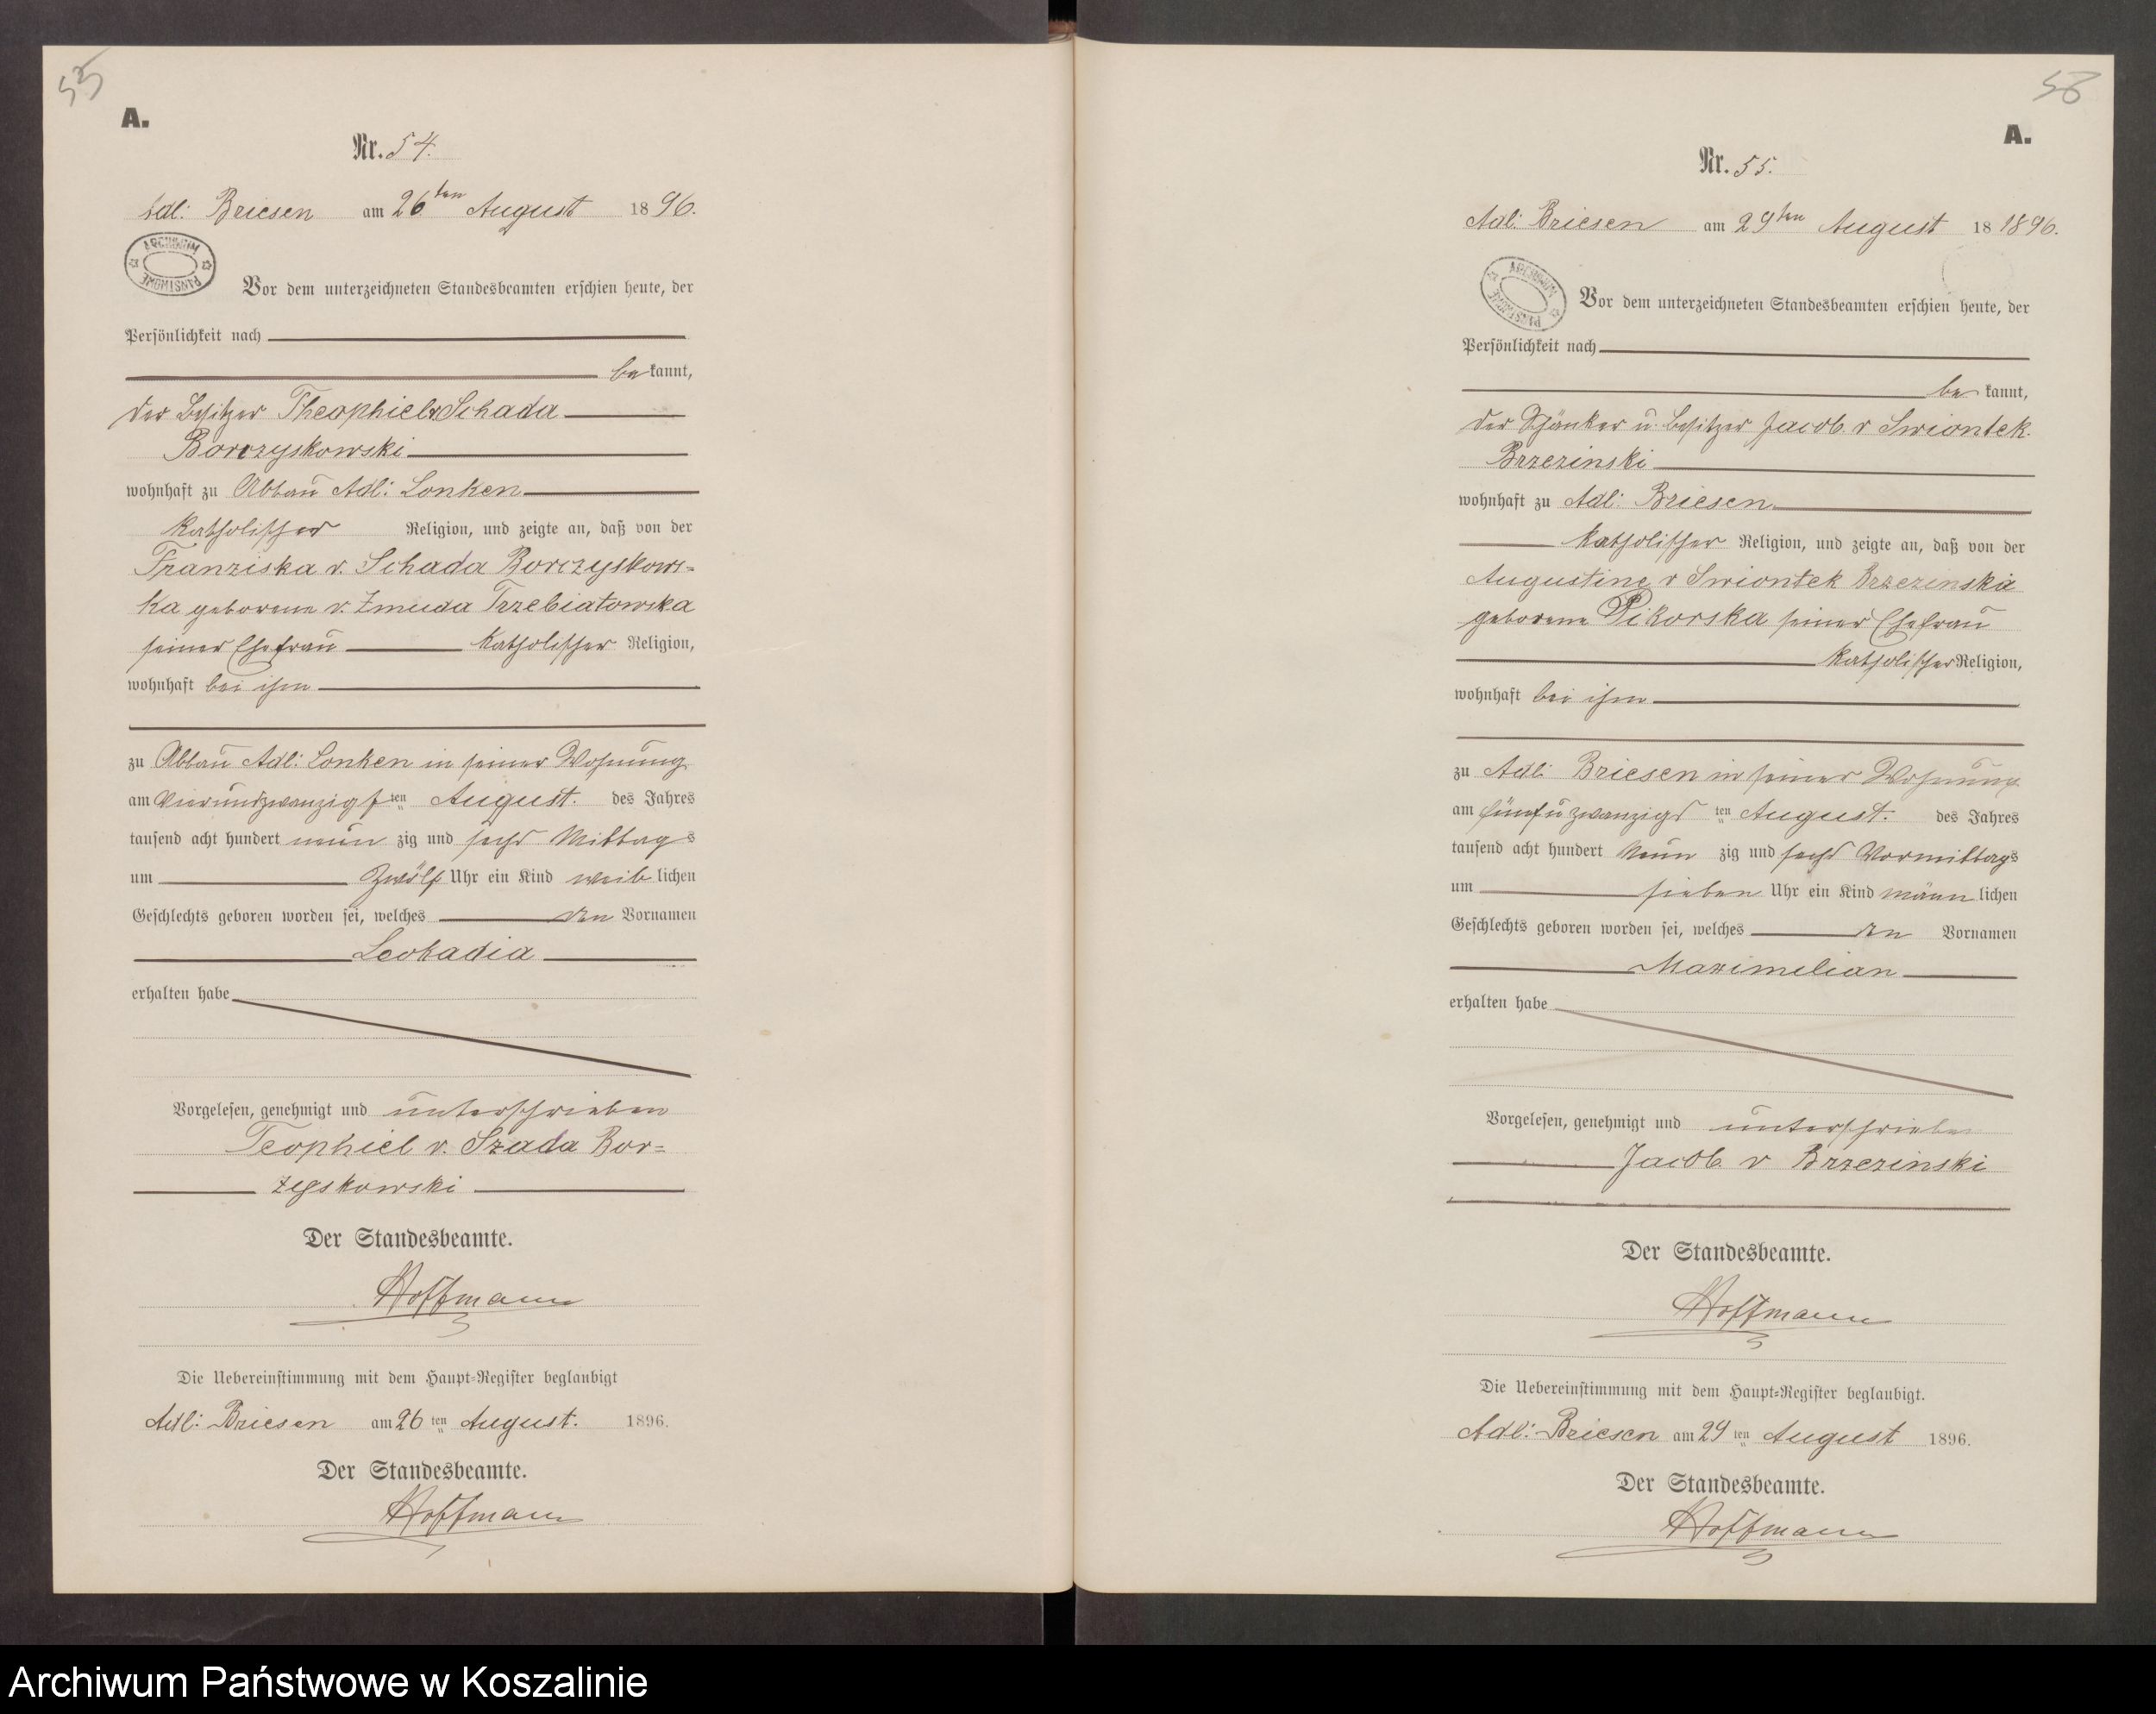 55
A.
Nr. 54.
Adl: Briesen am 26ten August 1896.
ARCHIWUM PAŃSTWOWE
Vor dem unterzeichneten Standesbeamten erschien heute, der
Persönlichkeit nach
bekannt,
der Besitzer Theophiel v Schada
Borczyskowski
wohnhaft zu Abbau Adl: Lonken
katholischer Religion, und zeigte an, daß von der
Franziska v. Schada Borczyskows=
ka geborene v. Zmuda Trzebiatowska
seiner Ehefrau katholischer Religion,
wohnhaft bei ihm
zu Abbau Adl: Lonken in seiner Wohnung
am vierundzwanzigsten August. des Jahres
tausend acht hundert neunzig und sechs Mittags
um Zwölf Uhr ein Kind weiblichen
Geschlechts geboren worden sei, welches den Vornamen
Leokadia
erhalten habe
Vorgelesen, genehmigt und unterschrieben
Teophiel v. Szada Bor=
zyskowski
Der Standesbeamte.
Hoffmann
Die Uebereinstimmung mit dem Haupt=Register beglaubigt
Adl: Briesen am 26ten August. 1896.
Der Standesbeamte.
Hoffmann
56
A.
Nr. 55.
Adl: Briesen am 29ten August 18 1896.
ARCHIWUM PAŃSTWOWE
Vor dem unterzeichneten Standesbeamten erschien heute, der
Persönlichkeit nach
bekannt,
der Schänker u. Besitzer Jacob v Swiontek
Brzezinski
wohnhaft zu Adl: Briesen
katholischer Religion, und zeigte an, daß von der
Augustine v Swiontek Brzezinska
geborene Pikorska seiner Ehefrau
katholischer Religion,
wohnhaft bei ihm
zu Adl: Briesen in seiner Wohnung
am fünfuzwanzigsten August. des Jahres
tausend acht hundert Neunzig und sechs Vormittags
um sieben Uhr ein Kind männlichen
Geschlechts geboren worden sei, welches den Vornamen
Maximilian
erhalten habe
Vorgelesen, genehmigt und unterschrieben
Jacob v Brzezinski
Der Standesbeamte.
Hoffmann
Die Uebereinstimmung mit dem Haupt=Register beglaubigt.
Adl: Briesen am 29ten August 1896.
Der Standesbeamte.
Hoffmann
Archiwum Państwowe w Koszalinie